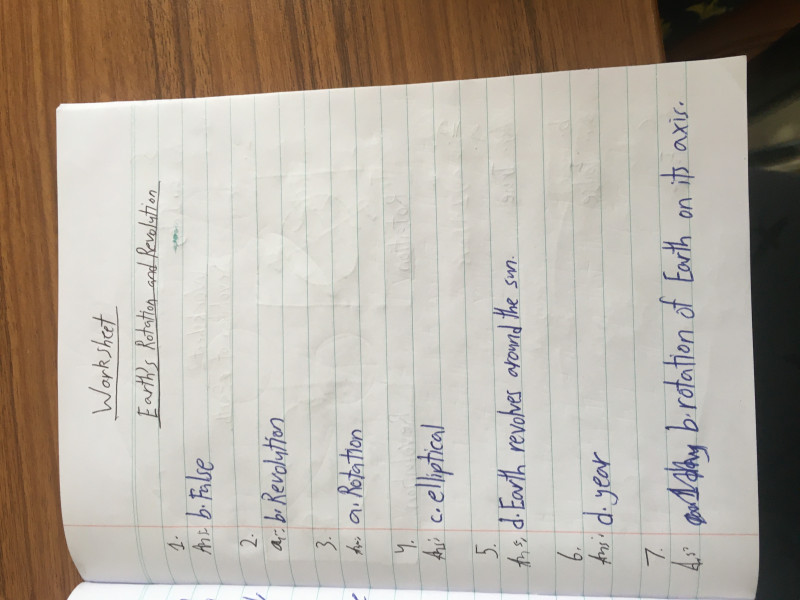 Worksheet
Earth's Rotation and Revolution
1.
Ans: b. False
2.
a: b. Revolution
3.
An: a. Rotation
4.
Ans: c. elliptical
5.
Ans: d. Earth revolves around the sun.
6.
Ans: d. year
7.
As: b. rotation of Earth on its axis.